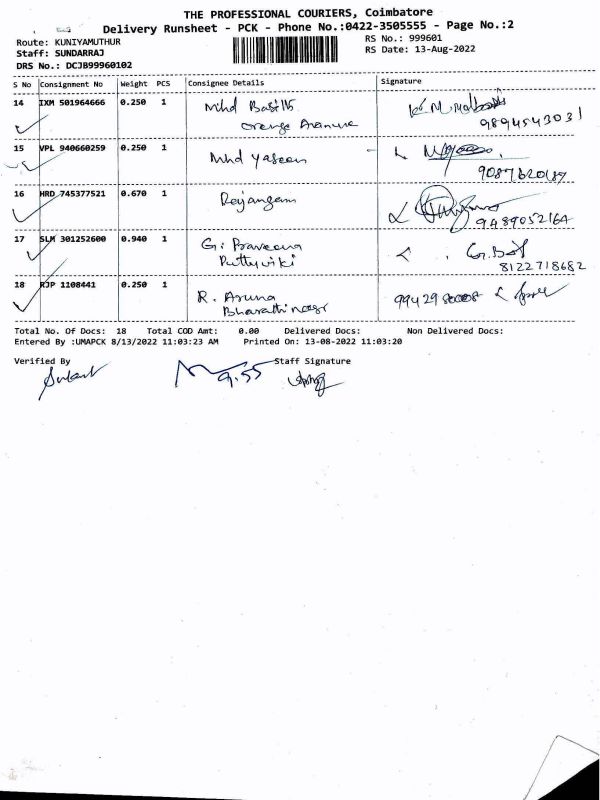 THE PROFESSIONAL COURIERS, Coimbatore
Delivery Runsheet - PCK - Phone No.:0422-3505555 - Page No.:2
Route: KUNIYAMUTHUR RS No.: 999601
Staff: SUNDARRAJ RS Date: 13-Aug-2022
DRS No.: DCJB99960102
S No Consignment No Weight PCS Consignee Details Signature
14 IXM 501964666 0.250 1 Mhd Basith
orange 9894543031
15 VPL 940660259 0.250 1 Mhd Yaseen
9087620187
16 HRD 745377521 0.670 1 Rejangam
9489052164
17 SLM 301252600 0.940 1 G. Praveena
Puttyviki 8122718682
18 RJP 1108441 0.250 1 R. Aruna
Bharathi nagar
Total No. Of Docs: 18 Total COD Amt: 0.00 Delivered Docs: Non Delivered Docs:
Entered By :UMAPCK 8/13/2022 11:03:23 AM Printed On: 13-08-2022 11:03:20
Verified By Staff Signature
9.55